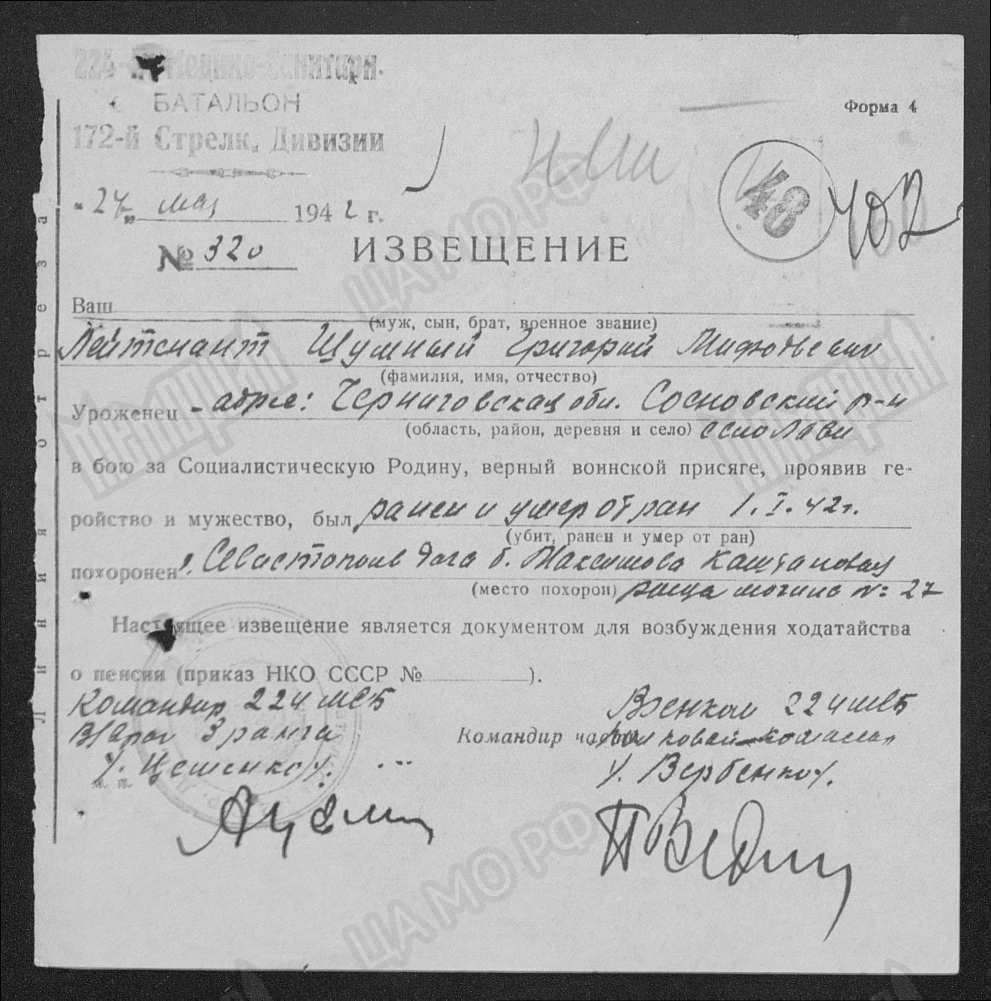 224-й Медико-Санитарн.
БАТАЛЬОН
172-й Стрелк. Дивизии
Форма 4
48
402
"27" мая 1942 г.
№ 320
ИЗВЕЩЕНИЕ
Линия отреза
Ваш
(муж, сын, брат, военное звание)
Лейтенант Шумный Григорий Мифодьевич
(фамилия, имя, отчество)
Уроженец - адрес: Черниговская обл. Сосновский р-н
(область, район, деревня и село) село Лави
в бою за Социалистическую Родину, верный воинской присяге, проявив ге-
ройство и мужество, был ранен и умер от ран 1.I.42г.
(убит, ранен и умер от ран)
похоронен г. Севастополь дача б. Максимова Каштановая
(место похорон) роща могила №: 27
Настоящее извещение является документом для возбуждения ходатайства
о пенсии (приказ НКО СССР № ).
Командир 224 МСБ
Военком 224 МСБ
В/врач 3 ранга
Командир части
/. Цешенко /.
/. Вербенко /.
м. п.
ЦАМО РФ
ЦАМО РФ